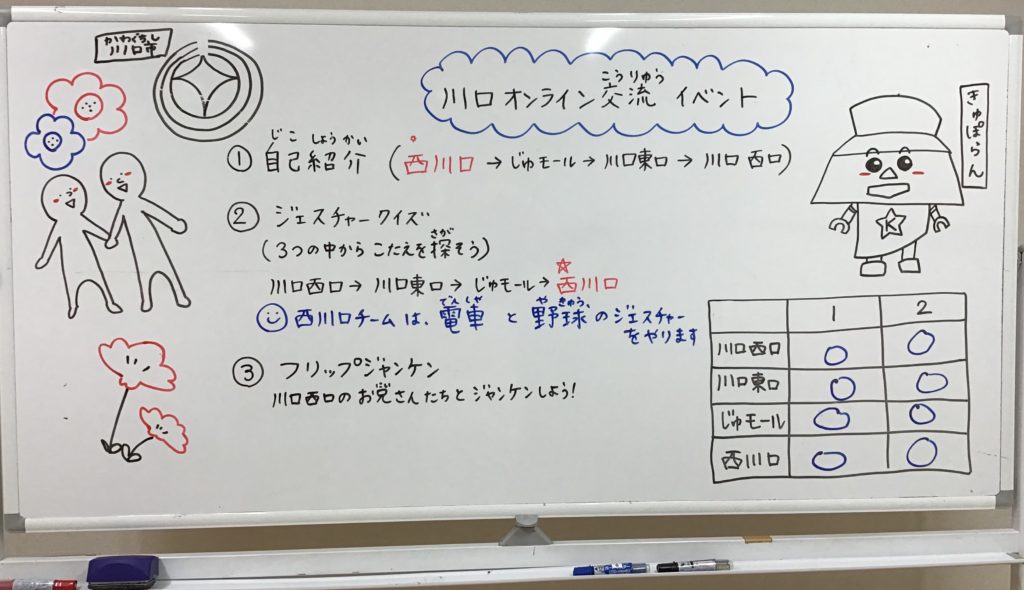 かわぐちし
川口市
こうりゅう
川口オンライン交流イベント
きゅぽらん
じこしょうかい
① 自己紹介 (西川口→じゅモール→川口東口→川口西口)
② ジェスチャークイズ
さが
(3つの中からこたえを探そう)
川口西口→川口東口→じゅモール→西川口
でんしゃ やきゅう
西川口チームは、電車と野球のジェスチャー
をやります
③ フリップジャンケン
川口西口のお兄さんたちとジャンケンしよう!
K
1 2
川口西口 ○ ○
川口東口 ○ ○
じゅモール ○ ○
西川口 ○ ○